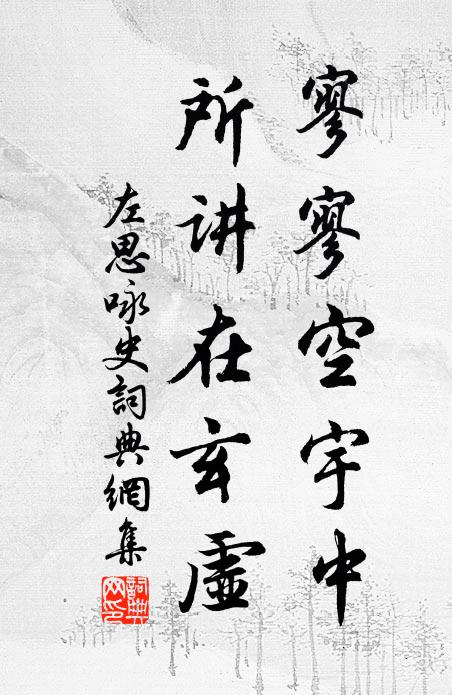 寥寥空宇中
所讲在玄虚
左思咏史詞典網集
詞典